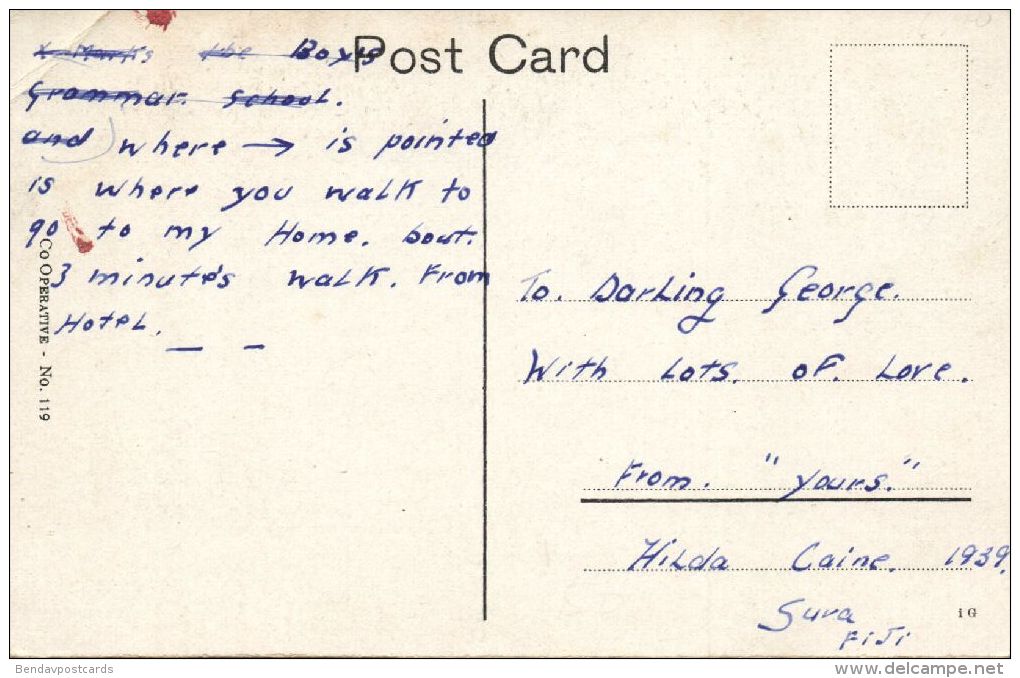 Post Card
x Marks the Boy's
Grammar. School.
and where → is pointed
is where you walk to
go to my Home. bout.
3 minute's walk. From
Hotel.
To. Darling George.
With Lots. of. Love.
From. "yours."
Hilda Caine. 1939.
Suva
FiJi
CO OPERATIVE - No. 119
1 G
Bendavpostcards
delcampe.net